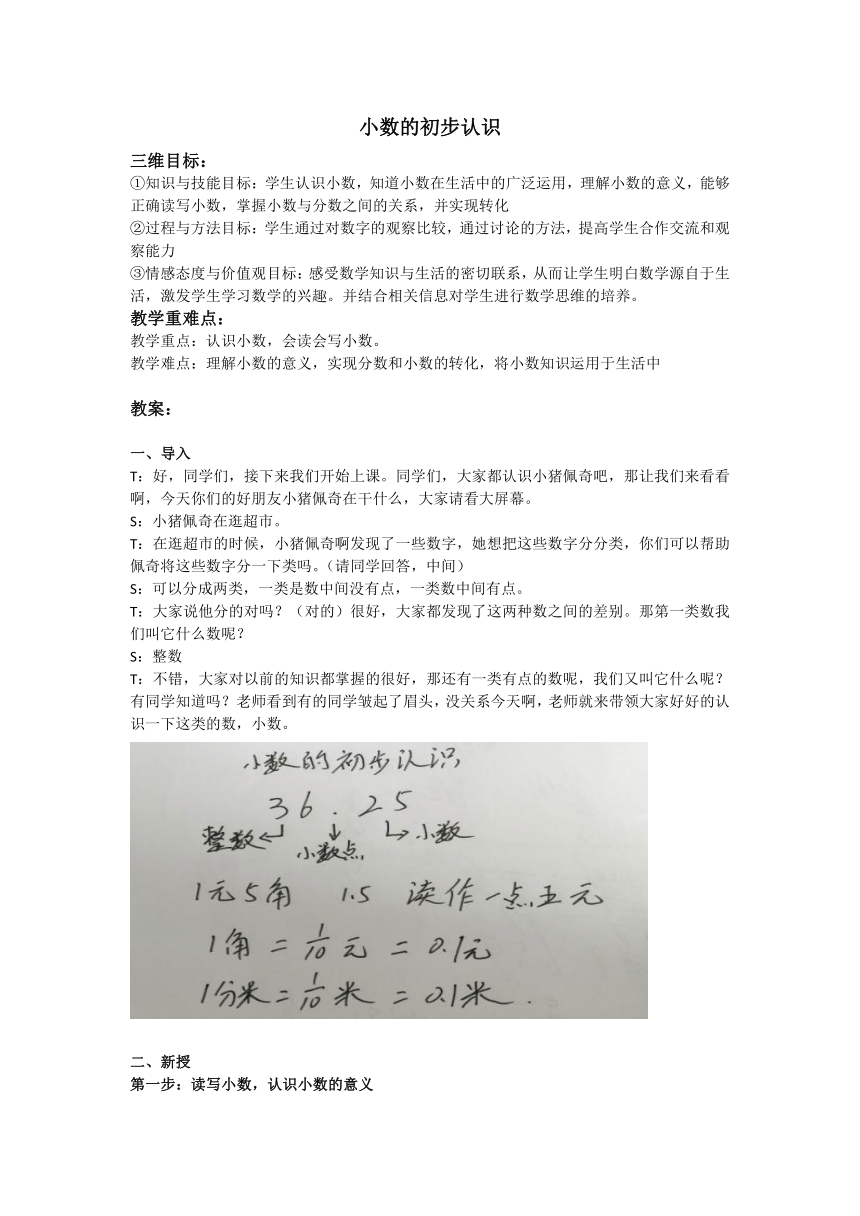 小数的初步认识
三维目标：
①知识与技能目标：学生认识小数，知道小数在生活中的广泛运用，理解小数的意义，能够
正确读写小数，掌握小数与分数之间的关系，并实现转化
②过程与方法目标：学生通过对数字的观察比较，通过讨论的方法，提高学生合作交流和观
察能力
③情感态度与价值观目标：感受数学知识与生活的密切联系，从而让学生明白数学源自于生
活，激发学生学习数学的兴趣。并结合相关信息对学生进行数学思维的培养。
教学重难点：
教学重点：认识小数，会读会写小数。
教学难点：理解小数的意义，实现分数和小数的转化，将小数知识运用于生活中
教案：
一、导入
T：好，同学们，接下来我们开始上课。同学们，大家都认识小猪佩奇吧，那让我们来看看
啊，今天你们的好朋友小猪佩奇在干什么，大家请看大屏幕。
S：小猪佩奇在逛超市。
T：在逛超市的时候，小猪佩奇啊发现了一些数字，她想把这些数字分分类，你们可以帮助
佩奇将这些数字分一下类吗。（请同学回答，中间）
S：可以分成两类，一类是数中间没有点，一类数中间有点。
T：大家说他分的对吗？（对的）很好，大家都发现了这两种数之间的差别。那第一类数我
们叫它什么数呢？
S：整数
T：不错，大家对以前的知识都掌握的很好，那还有一类有点的数呢，我们又叫它什么呢？
有同学知道吗？老师看到有的同学皱起了眉头，没关系今天啊，老师就来带领大家好好的认
识一下这类的数，小数。
小数的初步认识
36.25
整数 小数点 小数
1元5角 1.5 读作一点五元
1角=1/10元=0.1元
1分米=1/10米=0.1米.
二、新授
第一步：读写小数，认识小数的意义